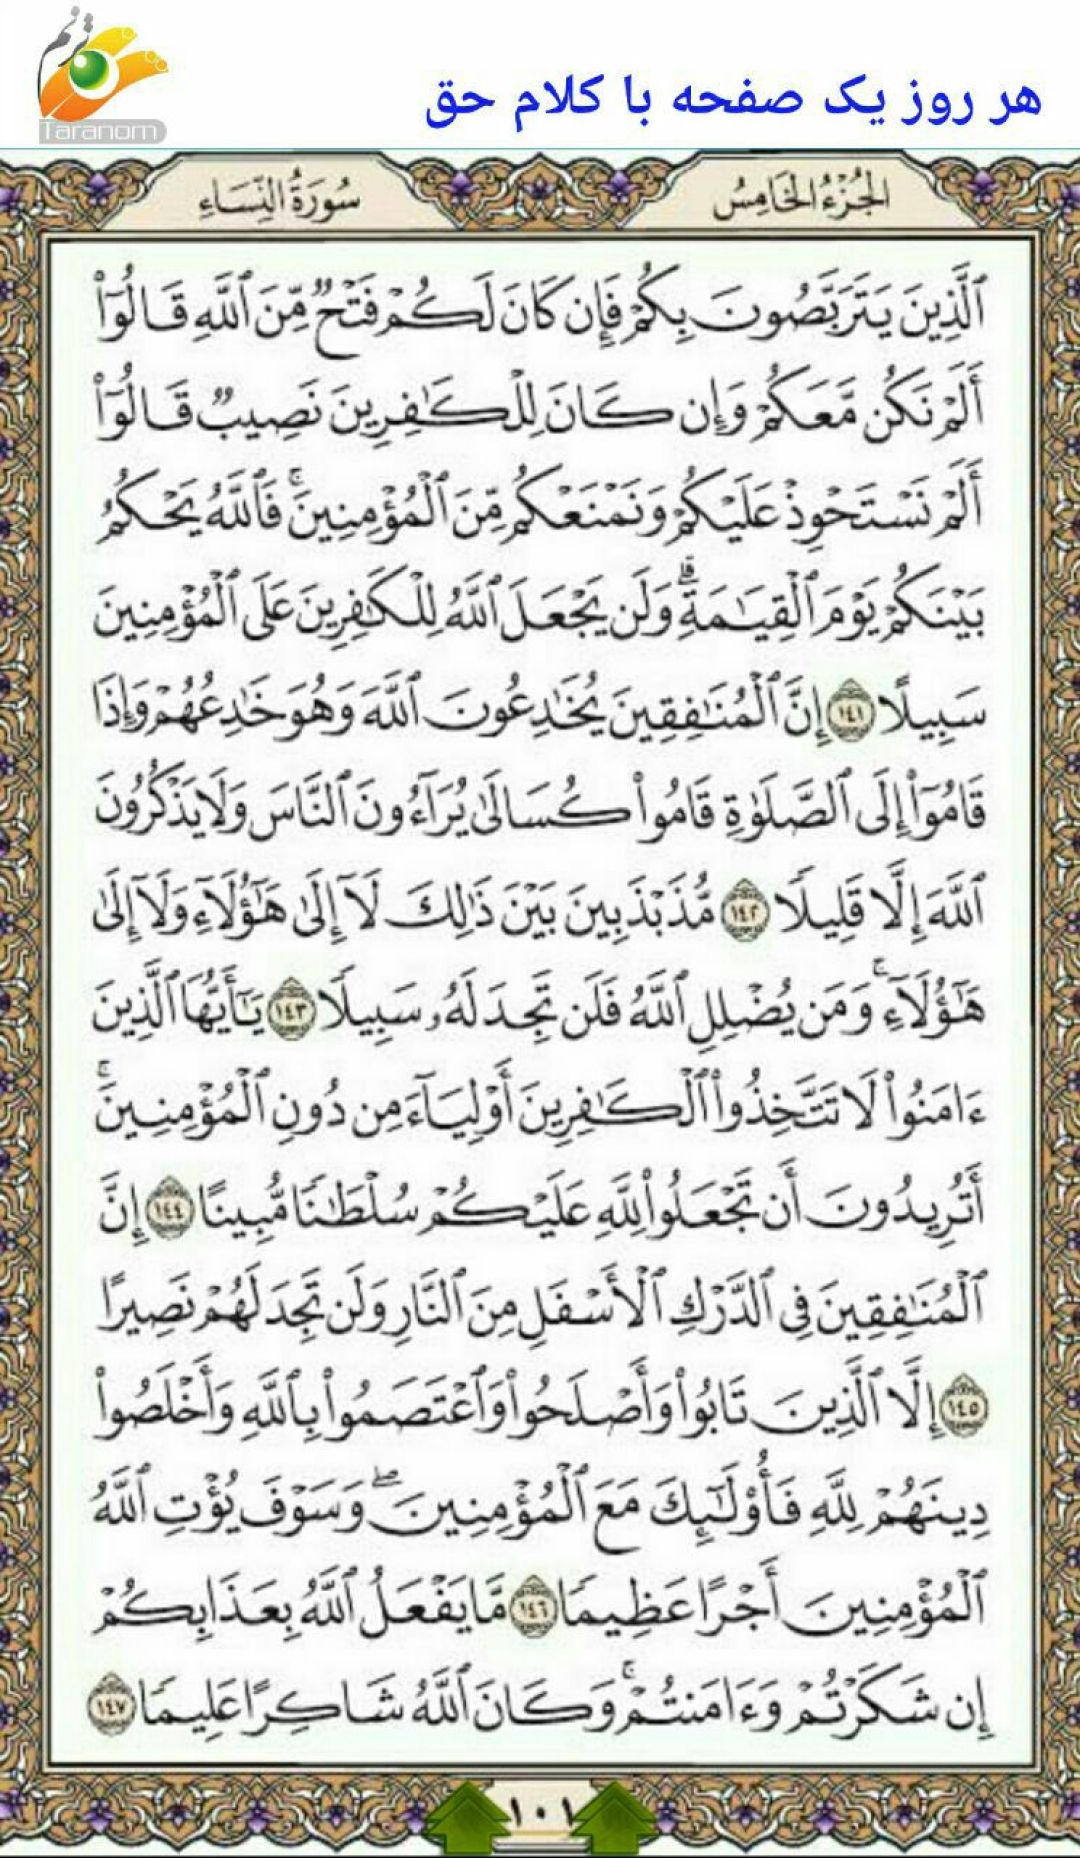 ترنم
Taranom
هر روز یک صفحه با کلام حق
الجُزْءُ الخَامِسُ
سُورَةُ النِّسَاءِ
ٱلَّذِينَ يَتَرَبَّصُونَ بِكُمْ فَإِن كَانَ لَكُمْ فَتْحٌ مِّنَ ٱللَّهِ قَالُوٓا۟
أَلَمْ نَكُن مَّعَكُمْ وَإِن كَانَ لِلْكَـٰفِرِينَ نَصِيبٌ قَالُوٓا۟
أَلَمْ نَسْتَحْوِذْ عَلَيْكُمْ وَنَمْنَعْكُم مِّنَ ٱلْمُؤْمِنِينَ ۚ فَٱللَّهُ يَحْكُمُ
بَيْنَكُمْ يَوْمَ ٱلْقِيَـٰمَةِ ۗ وَلَن يَجْعَلَ ٱللَّهُ لِلْكَـٰفِرِينَ عَلَى ٱلْمُؤْمِنِينَ
سَبِيلًا ١٤١ إِنَّ ٱلْمُنَـٰفِقِينَ يُخَـٰدِعُونَ ٱللَّهَ وَهُوَ خَـٰدِعُهُمْ وَإِذَا
قَامُوٓا۟ إِلَى ٱلصَّلَوٰةِ قَامُوا۟ كُسَالَىٰ يُرَآءُونَ ٱلنَّاسَ وَلَا يَذْكُرُونَ
ٱللَّهَ إِلَّا قَلِيلًا ١٤٢ مُّذَبْذَبِينَ بَيْنَ ذَٰلِكَ لَآ إِلَىٰ هَـٰٓؤُلَآءِ وَلَآ إِلَىٰ
هَـٰٓؤُلَآءِ ۚ وَمَن يُضْلِلِ ٱللَّهُ فَلَن تَجِدَ لَهُۥ سَبِيلًا ١٤٣ يَـٰٓأَيُّهَا ٱلَّذِينَ
ءَامَنُوا۟ لَا تَتَّخِذُوا۟ ٱلْكَـٰفِرِينَ أَوْلِيَآءَ مِن دُونِ ٱلْمُؤْمِنِينَ ۚ
أَتُرِيدُونَ أَن تَجْعَلُوا۟ لِلَّهِ عَلَيْكُمْ سُلْطَـٰنًا مُّبِينًا ١٤٤ إِنَّ
ٱلْمُنَـٰفِقِينَ فِى ٱلدَّرْكِ ٱلْأَسْفَلِ مِنَ ٱلنَّارِ وَلَن تَجِدَ لَهُمْ نَصِيرًا
١٤٥ إِلَّا ٱلَّذِينَ تَابُوا۟ وَأَصْلَحُوا۟ وَٱعْتَصَمُوا۟ بِٱللَّهِ وَأَخْلَصُوا۟
دِينَهُمْ لِلَّهِ فَأُو۟لَـٰٓئِكَ مَعَ ٱلْمُؤْمِنِينَ ۖ وَسَوْفَ يُؤْتِ ٱللَّهُ
ٱلْمُؤْمِنِينَ أَجْرًا عَظِيمًا ١٤٦ مَّا يَفْعَلُ ٱللَّهُ بِعَذَابِكُمْ
إِن شَكَرْتُمْ وَءَامَنتُمْ ۚ وَكَانَ ٱللَّهُ شَاكِرًا عَلِيمًا ١٤٧
١٠١